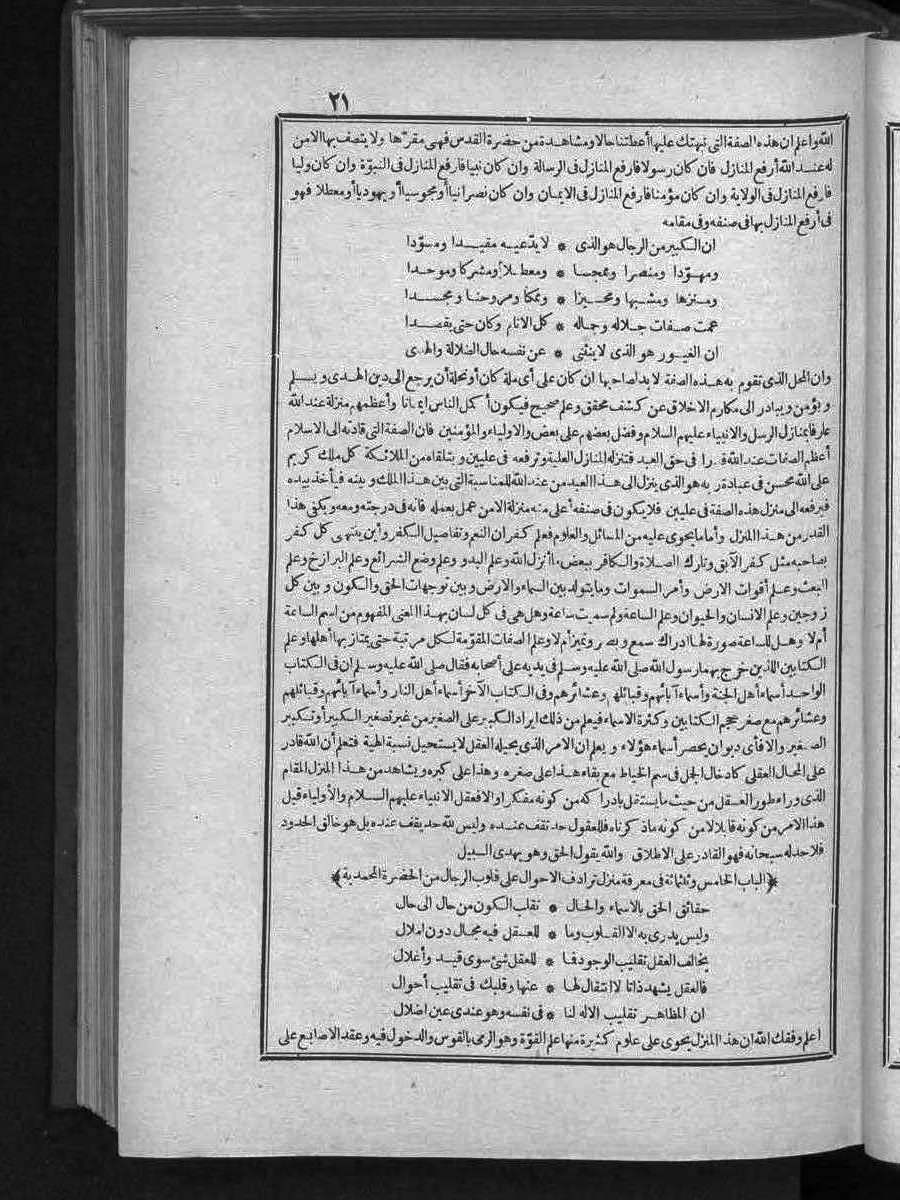 ٢١
الله واعلم ان هذه الصفة التى نبهتك عليها أعطتنا حالا ومشاهدة من حضرة القدس فهى مقرّها ولا يتصف بها الا من
له عند الله أرفع المنازل فان كان رسولا فارفع المنازل فى الرسالة وان كان نبيا فارفع المنازل فى النبوّة وان كان وليا
فارفع المنازل فى الولاية وان كان مؤمنا فارفع المنازل فى الايمان وان كان نصرانيا أو مجوسيا أو يهوديا أو معطلا فهو
فى أرفع المنازل بها فى صنفه وفى مقامه
ان الكبير من الرجال هو الذى * لا يدّعيه مقيدا ومسوّدا
ومهوّدا ومنصرا وممجسا * ومعطلا أو مشركا وموحدا
ومنزها ومشبها ومحيزا * وممكا ومروحنا ومجسدا
عمت صفات جلاله وجماله * كل الانام وكان حتى يقصدا
ان الغيور هو الذى لا ينثنى * عن نفسه حال الضلالة والهدى
وان المحل الذى تقوم به هذه الصفة لا بد لصاحبها ان كان على أى ملة كان أو نحلة أن يرجع الى دين الهدى ويسلم
ويؤمن ويبادر الى مكارم الاخلاق عن كشف محقق وعلم صحيح فيكون أكمل الناس ايمانا وأعظمهم منزلة عند الله
عارفا بمنازل الرسل والانبياء عليهم السلام وفضل بعضهم على بعض والاولياء والمؤمنين فان الصفة التى قادته الى الاسلام
أعظم الصفات عند الله قدرا فى حق العبد فتنزله المنازل العلية وترفعه فى عليين ويتلقاه من الملائكة كل ملك كريم
على الله محسن فى عبادة ربه هو الذى ينزل الى هذا العبد من عند الله للمناسبة التى بين هذا الملك وبينه فيأخذ بيده
فيرفعه الى منزل هذه الصفة فى عليين فلا يكون فى صنفه أعلى منه منزلة الا من عمل بعمله فانه فى درجته ومعه ويكفى هذا
القدر من هذا المنزل وأما ما يحوى عليه من المسائل والعلوم فعلم كفران النعم وتفاصيل الكفر وأين ينتهى كل كفر
بصاحبه مثل كفر الآبق وتارك الصلاة والكافر ببعض ما أنزل الله وعلم البدو وعلم وضع الشرائع وعلم البرازخ وعلم
البعث وعلم أقوات الارض وأمر السموات وما يتولد بين السماء والارض وبين توجهات الحق والكون وبين كل
زوجين وعلم الانسان والحيوان وعلم الساعة ولم سميت ساعة وهل هى فى كل لسان بهذا المعنى المفهوم من اسم الساعة
أم لا وهل للساعة صورة لها ادراك سمع وبصر وتميز أم لا وعلم الصفات المقوّمة لكل مرتبة حتى يمتاز بها أهلها وعلم
الكتابين اللذين خرج بهما رسول الله صلى الله عليه وسلم فى يديه على أصحابه فقال صلى الله عليه وسلم ان فى الكتاب
الواحد أسماء أهل الجنة وأسماء آبائهم وقبائلهم وعشائرهم وفى الكتاب الآخر أسماء أهل النار وأسماء آبائهم وقبائلهم
وعشائرهم مع صغر حجم الكتابين وكثرة الاسماء فيعلم من ذلك ايراد الكبير على الصغير من غير تصغير الكبير أو تكبير
الصغير والا فأى ديوان يحصر أسماء هؤلاء ويعلم ان الامر الذى يحيله العقل لا يستحيل نسبة الهية فتعلم أن الله قادر
على المحال العقلى كادخال الجمل فى سم الخياط مع بقاء هذا على صغره وهذا على كبره ويشاهد من هذا المنزل المقام
الذى وراء طور العقل من حيث ما يستقل بادراكه من كونه مفكرا والا فعقل الانبياء عليهم السلام والأولياء قبل
هذا الامر من كونه قابلا لا من كونه ما ذكرناه فللعقول حد تقف عنده وليس لله حد يقف عنده بل هو خالق الحدود
فلا حد له سبحانه فهو القادر على الاطلاق والله يقول الحق وهو يهدى السبيل
﴿الباب الخامس وثلثمائة فى معرفة منزل ترادف الاحوال على قلوب الرجال من الحضرة المحمدية﴾
حقائق الحق بالاسماء والحال * تقلب الكون من حال الى حال
وليس يدرى به الا القلوب وما * للعقل فيه مجال دون املال
يخالف العقل تقليب الوجود فما * للعقل شئ سوى قيد وأغلال
فالعقل يشهد ذاتا لا انتقال لها * عنها وقلبك فى تقليب أحوال
ان المظاهر تقليب الاله لنا * فى نفسه وهو عندى عين اضلال
اعلم وفقك الله ان هذا المنزل يحوى على علوم كثيرة منها علم القوّة وهو الرمى بالقوس والدخول فيه وعقد الاصابع على